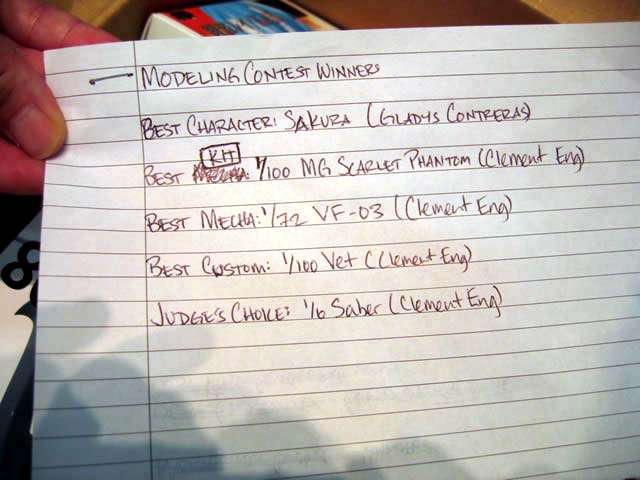 MODELING CONTEST WINNERS
BEST CHARACTER: SAKURA (GLADYS CONTRERAS)
KIT
BEST MECHA: 1/100 MG SCARLET PHANTOM (Clement Eng)
BEST MECHA: 1/72 VF-03 (Clement Eng)
BEST CUSTOM: 1/100 Vet (Clement Eng)
JUDGE'S CHOICE: 1/6 Saber (Clement Eng)